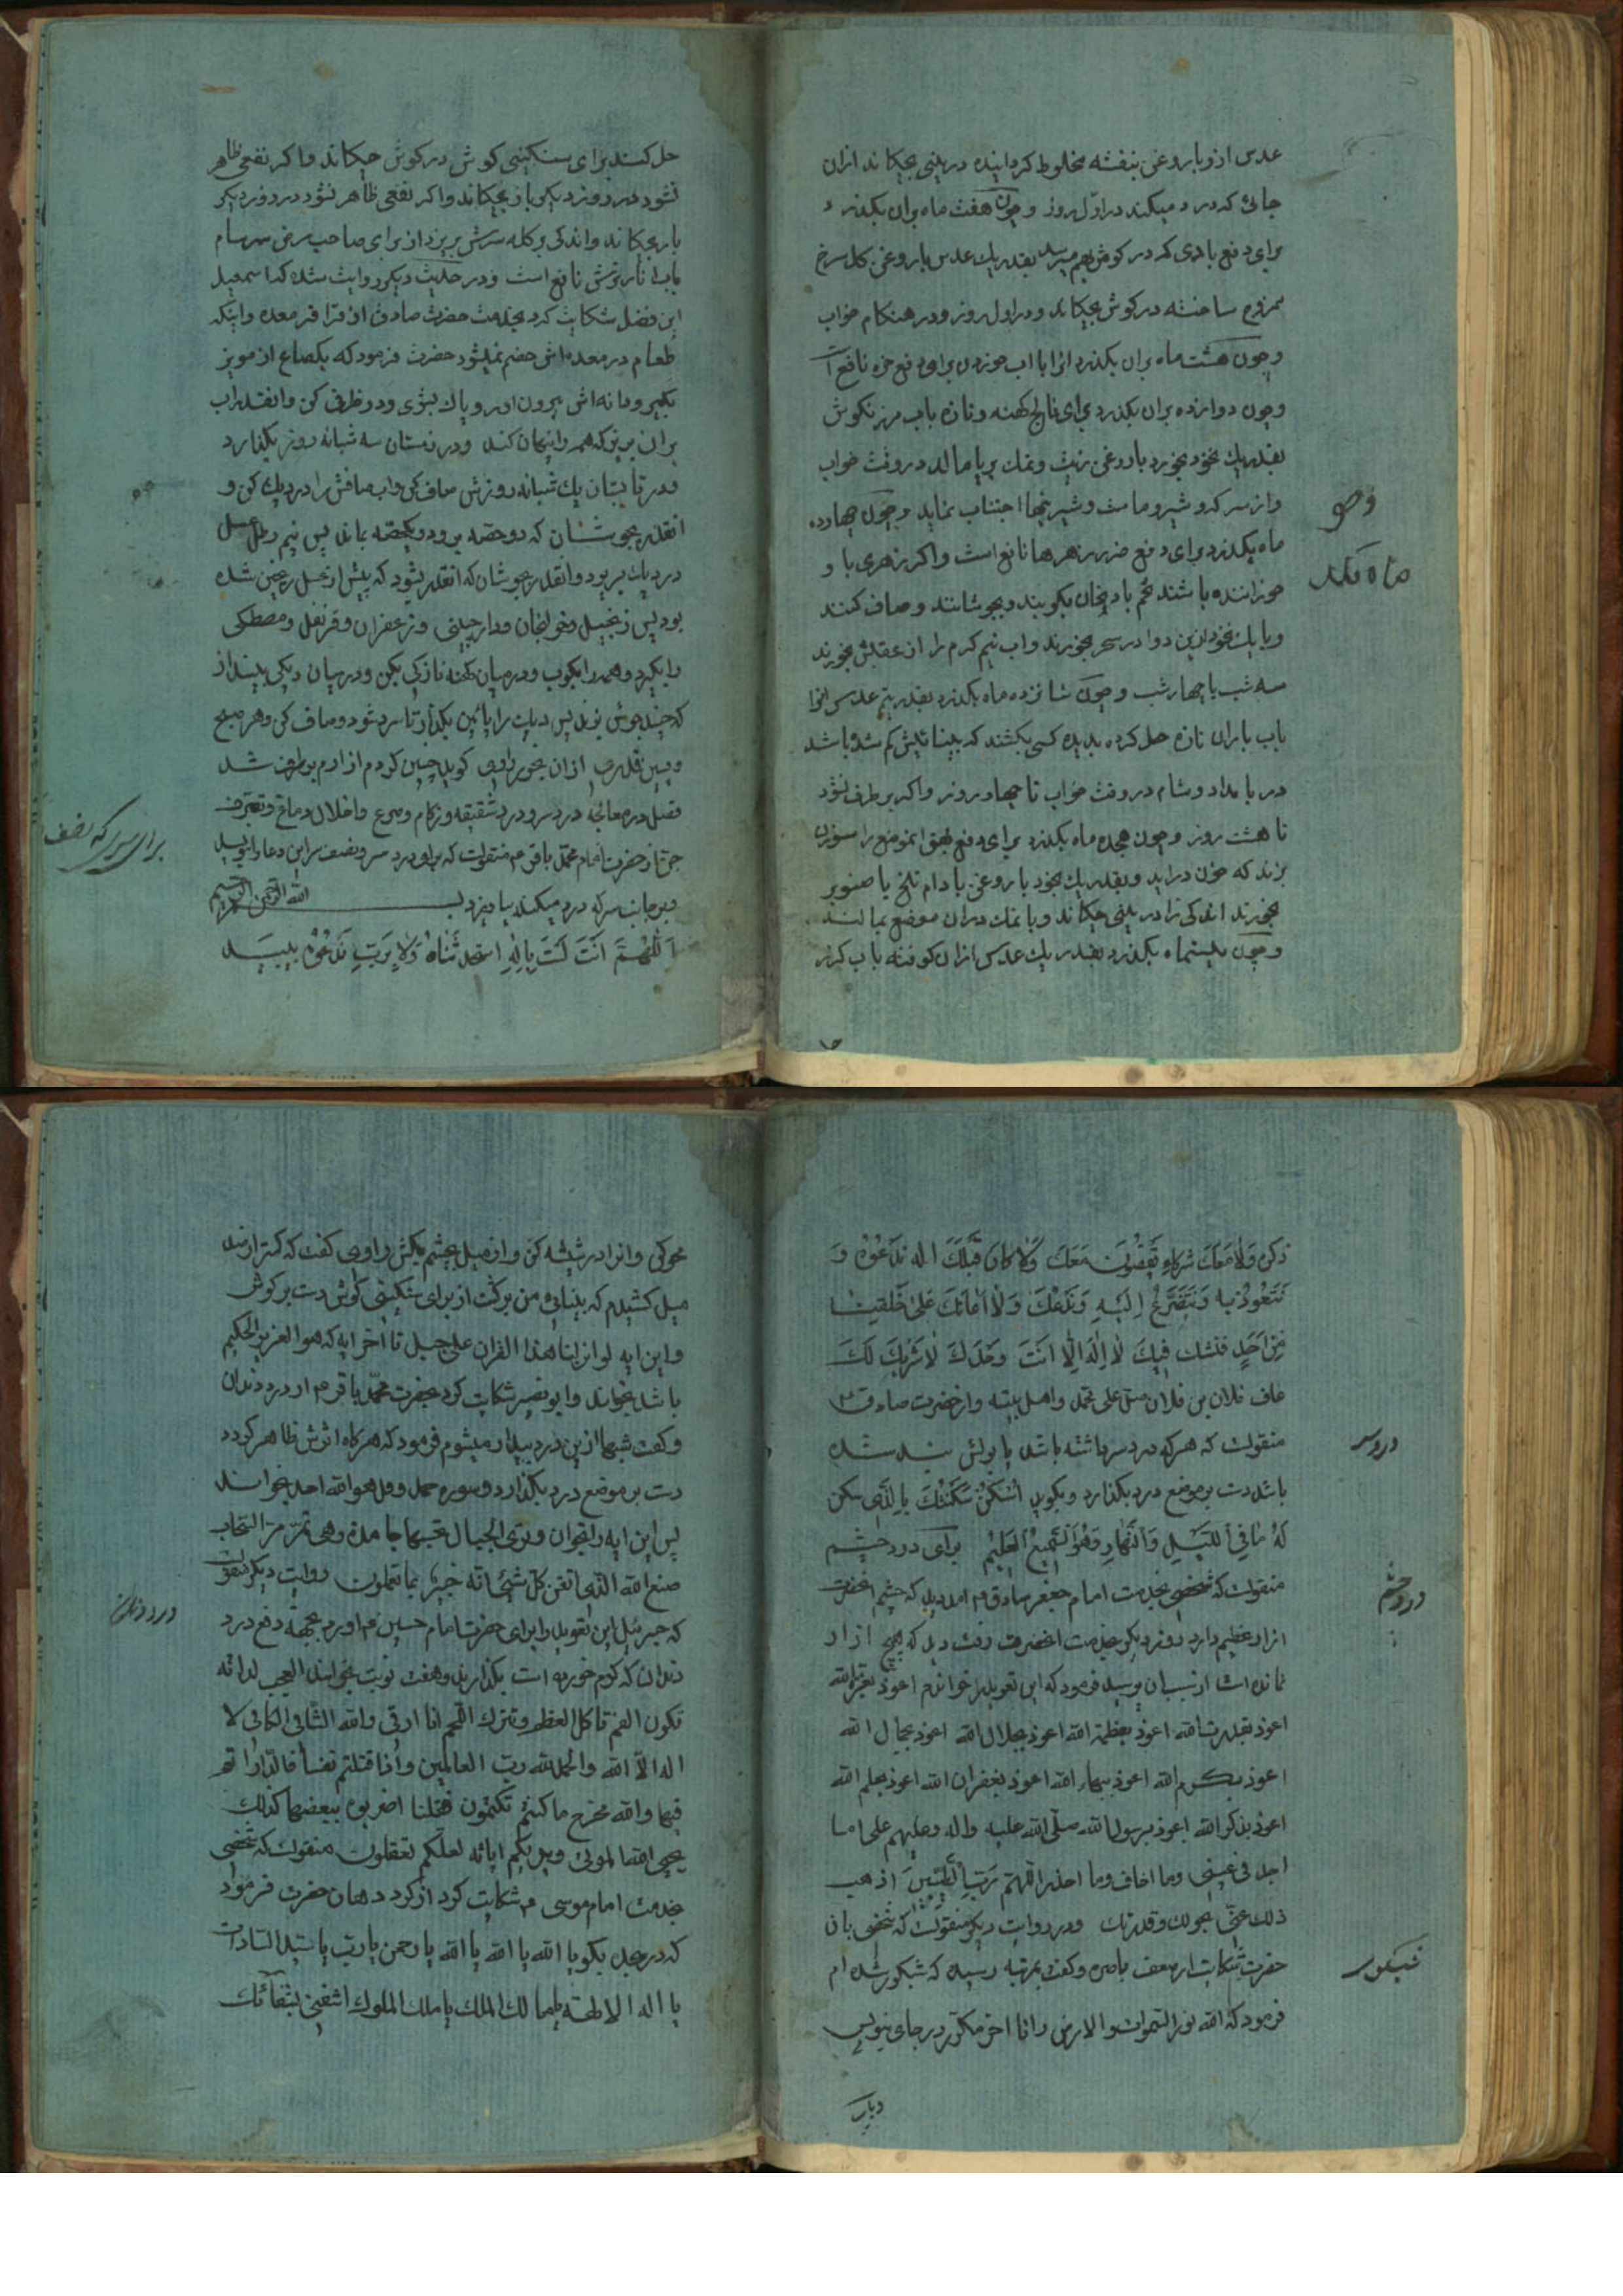 عدس ازو با روغن بنفشه مخلوط کردانیده در بینی بچکاند ازان
جانی که درد میکند در اوّل روز و چون هفت ماه بران بکذرد
برای دفع بادی که در کوش بهم میرسد بقدر یك عدس با روغن کل سرخ
ممزوج ساخته در کوش بچکاند و در اول روز و در هنکام خواب
و چون هشت ماه بران بکذرد انرا با اب خوردن برای دفع خوره نافع
و چون دوازده بران بکذرد برای فالج کهنه و تازه باب مرزنکوش
بقدر یك نخود بخورد با روغن زیت و نمك بر پا مالد در وقت خواب
و از سرکه و شیر و ماست و شیرینیها اجتناب نماید و چون چهارده
ماه بکذرد برای دفع ضرر زهرها نافع است و اکر زهری با و
خورانده باشند تخم بادنجان بکوبند و بجوشانند و صاف کنند
و با یك نخود ازین دوا در سحر بخورند و اب نیم کرم را از عقبش بخورند
سه شب یا چهار شب و چون شانزده ماه بکذرد بقدر نیم عدس انرا
باب باران تازه حل کرده بدیده کسی بکشند که بینائیش کم شده باشد
در بامداد و شام در وقت خواب تا چهار روز و اکر برطرف نشود
تا هشت روز و چون هجده ماه بکذرد برای دفع بهق انموضع را سوزن
بزند که خون دراید و بقدر یك نخود با روغن بادام تلخ یا صنوبر
بخورند اندکی را در بینی چکاند و با نمك دران موضع بمالند
و چون بیستماه بکذرد بقدر یك عدس ازان کوفته باب
ماه بکذرد
حل کنند برای سنکینی کوش در کوش چکاند و اکر نفعی ظاهر
نشود در روز دیکر باز بچکاند و اکر نفعی ظاهر نشود در روز دیکر
باز بچکاند و اندکی بر کله سرش بریزد از برای صاحب مرض سرسام
باب انار ترش نافع است و در حدیث دیکر روایت شده که اسمعیل
ابن فضل شکایت کرد بخدمت حضرت صادق از قراقر معده و اینکه
طعام در معده اش هضم نمیشود حضرت فرمود که یکصاع از مویز
بکیر و دانه اش بیرون اور و پاك بشوی و در ظرفی کن و انقدر اب
بران بریز که همه را پنهان کند و در زمستان سه شبانه روز بکذارد
و در تابستان یك شبانه روزش صاف کن و اب صافش را در دیك کن و
انقدر بجوشان که دو حصه برود و یکحصه بماند پس نیم رطل عسل
در دیك بریز و انقدر بجوشان که انقدر بشود که پیش از عسل ریختن شده
بود پس زنجبیل و خولنجان و دارچینی و زعفران و قرنفل و مصطکی
را بکیر و همه را بکوب و در میان کهنه نازکی بکن و در میان دیکی بینداز
که چند جوش بزند پس دیك را پائین بکذار تا سرد شود و صاف کن و هر صبح
و پسین قدری ازان بخور راوی کوید چنین کردم ازارم برطرف شد
فصل در معالجه درد سر و درد شقیقه و زکام و صرع و اخلال دماغ و تصرف
جن از حضرت امام محمد باقر ع منقولست که برای درد سر و نصف سر این دعا را بنویسد
و بر جانب سر که درد میکند بیاویزد بسم الله الرحمن الرحیم
اَللّٰهُمَّ اَنْتَ لَسْتَ بِاِلٰهٍ استحدثناهُ وَلا بِرَبٍّ
برای سر که نصف
ذکره وَلا مَعَكَ شرکاء یَقْضُونَ مَعَكَ وَلا کانَ قَبْلَكَ اله نَدْعُوْهُ وَ
نَتَعَوَّذُ به وَنَتَضَرَّعُ اِلَیْهِ وَنَدَعُكَ وَلا اَعانَكَ عَلیٰ خَلقِنا
مِنْ اَحَدٍ فنشك فیكَ لا اِلٰهَ اِلّا اَنتَ وَحْدَكَ لا شَرِیكَ لَكَ
عاف فلان بن فلان صل علی محمد و اهل بیته و از حضرت صادق ع
منقولست که هر که درد سر داشته باشد یا بولش بند شده
باشد دست بر موضع درد بکذارد و بکوید اُسْکُنْ سَکَّنْتُكَ بِالَّذی سکن
لَهُ ما فِی اللَّیْلِ وَالنَّهارِ وَهُوَ السَّمیعُ العَلیمُ برای درد چشم
منقولست که شخصی بخدمت امام جعفر صادق ع امد دید که چشم انحضرت
ازار عظیم دارد روز دیکر بخدمت انحضرت رفت دید که هیچ ازار
نمانده است از سبب ان پرسید فرمود که این تعویذ را خواندم اعوذ بعزة الله
اعوذ بقدرت الله اعوذ بعظمة الله اعوذ بجلال الله اعوذ بجمال الله
اعوذ بکرم الله اعوذ ببهاء الله اعوذ بغفران الله اعوذ بحلم الله
اعوذ بذکر الله اعوذ برسول الله صلّی الله علیه واله وعلیهم علی ما
اجد فی عینی وما اخاف وما احذر اللّهم رَبَّ الطَّیِّبینَ اذهب
ذلك عنّی بحولك وقدرتك و در روایت دیکر منقولست که شخصی بان
حضرت شکایت از ضعف باصره و کفت بمرتبه رسیده که شبکور شده ام
فرمود که الله نور السموات والارض را تا اخر مکرر در جای بنویس
درد سر
درد چشم
شبکور
محو کن و انرا در شیشه کن و از میل بچشم بکش راوی کفت که کمتر از صد
میل کشیدم که بینائی من برکشت از برای سنکینی کوش دست بر کوش
و این ایه لو انزلنا هذا القران علی جبل تا اخر ایه که هو العزیز الحکیم
باشد بخواند و ابو بصیر شکایت کرد بحضرت محمّد باقر ع از درد دندان
و کفت شبها ازین درد بیدار میشوم فرمود که هر کاه اثرش ظاهر کردد
دست بر موضع درد بکذار و سوره حمد و قل هو الله احد بخواند
پس این ایه را بخوان وتری الجبال تحسبها جامدة وهی تمرّ مرّ السّحاب
صنع الله الّذی اتقن کلّ شیئ انّه خبیر بما تعملون روایت دیکر منقولست
که جبرئیل این تعویذ را برای حضرت امام حسین ع اورد بجهة دفع درد
دندان که کرم خورده است بکذارید و هفت نوبت بخوانند العجب لدابّه
تکون الفم تاکل العظم وتترك اللّحم انا ارقی والله الشّافی الکافی لا
اله الّا الله والحمد لله ربّ العالمین وإذ قتلتم نفساً فادّاراتم
فیها والله مخرج ما کنتم تکتمون فقلنا اضربوه ببعضها کذلك
یحیی الله الموتی ویریکم ایاته لعلّکم تعقلون منقولست که شخصی
بخدمت امام موسی ع شکایت کرد از کرد دهان حضرت فرمود
که در سجده بکو یا الله یا الله یا الله یا رحمن یا ربّ یا سیّد السّادات
یا اله الالهة یا مالك الملك یا ملك الملوك اشفنی بشفائك
درد دندان